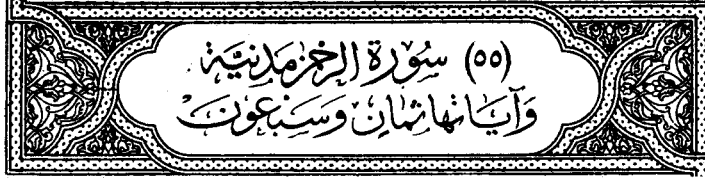 (٥٥) سُورَة الرَّحْمٰن مَدنِيَّة
وَآيَاتهَا ثمَانٍ وَسَبْعُونَ